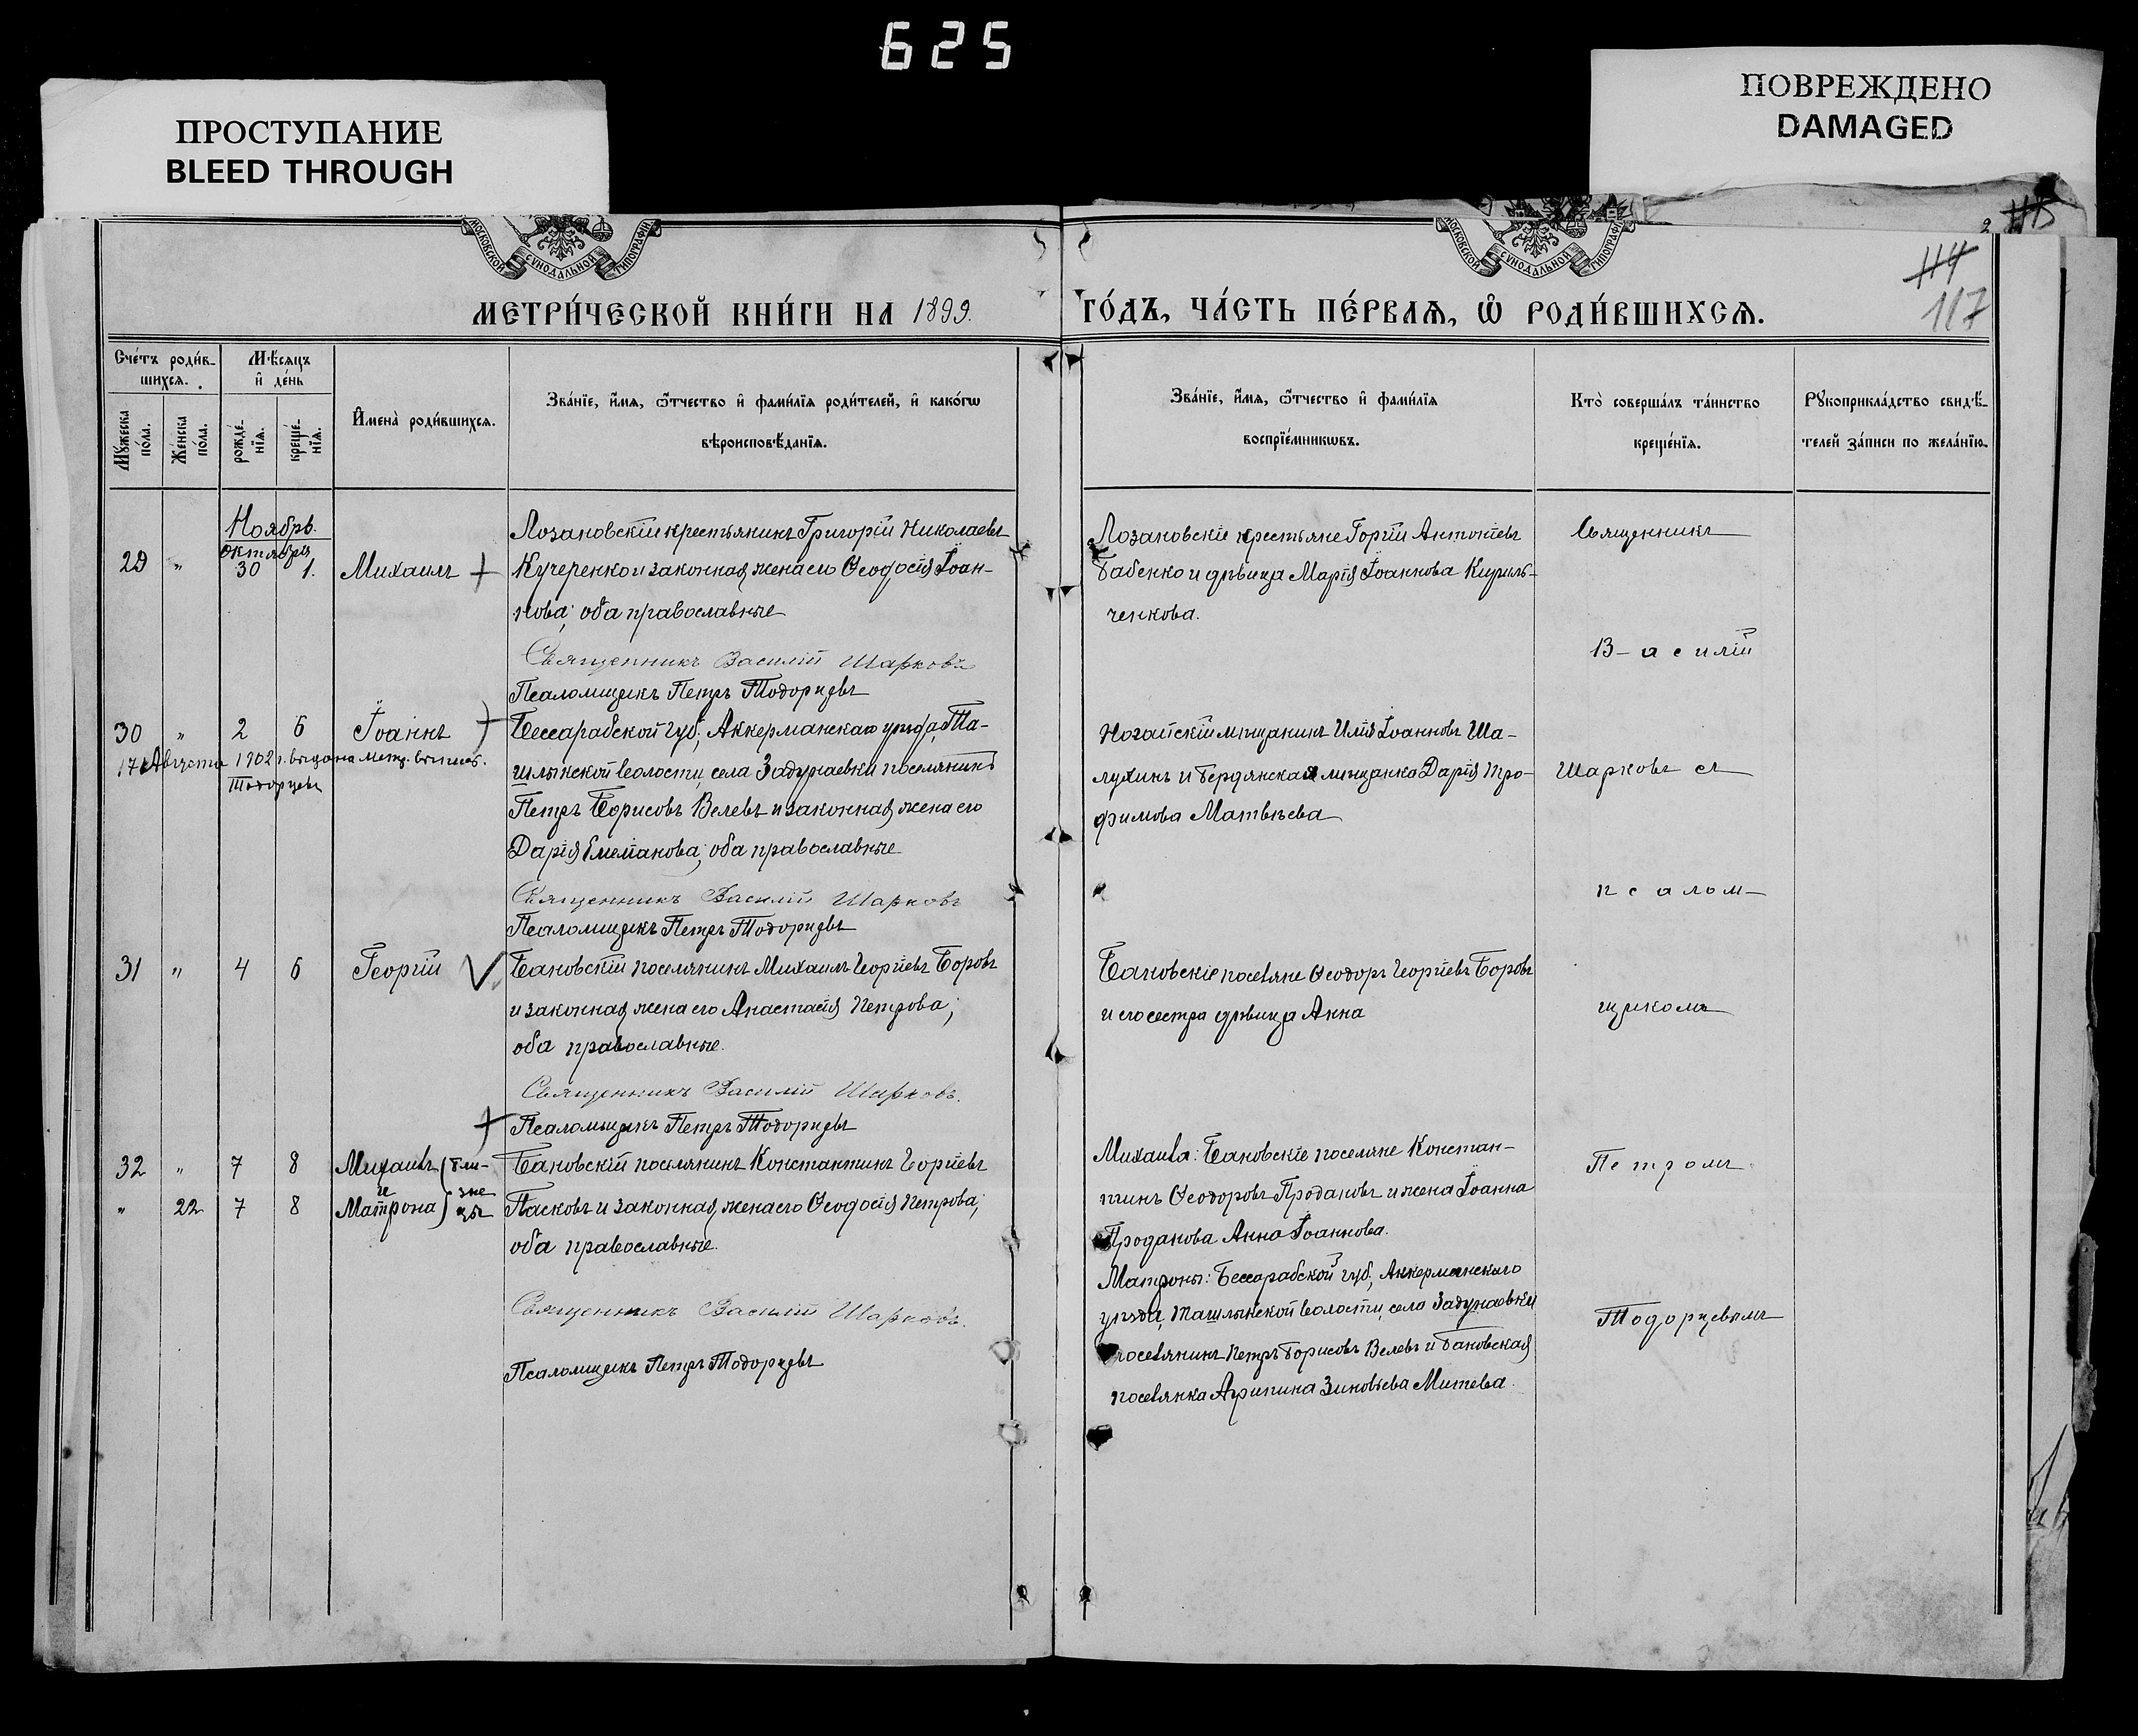 625
ПРОСТУПАНИЕ
BLEED THROUGH
ПОВРЕЖДЕНО
DAMAGED
МОСКОВСКОЙ СѴНОДАЛЬНОЙ ТИПОГРАФІИ
МОСКОВСКОЙ СѴНОДАЛЬНОЙ ТИПОГРАФІИ
115
114
117
МЕТРИ́ЧЕСКОЙ КНИ́ГИ НА 1899.
ГО́ДЪ, ЧА́СТЬ ПЕ́РВАѦ, Ѡ҆ РОДИ́ВШИХСѦ.
Сче́тъ роди́в-
шихсѧ.
Мѣ́сѧцъ
и҆ де́нь
Мꙋ́жеска
по́ла.
Же́нска
по́ла.
рожде́-
нїѧ.
креще́-
нїѧ.
И҆мена̀ роди́вшихсѧ.
Зва́нїе, и҆́мѧ, ѻ҆́тчество и҆ фами́лїѧ роди́телей, и҆ како́гѡ
вѣроисповѣ́данїѧ.
Зва́нїе, и҆́мѧ, ѻ҆́тчество и҆ фами́лїѧ
воспрїе́мникѡвъ.
Кто̀ соверша́лъ та́инство
креще́нїѧ.
Рꙋкоприкла́дство свидѣ́-
телей за́писи по жела́нїю.
Ноябрь.
Октября
29 " 30 1. Михаилъ
Лозановскій крестьянинъ Григорій Николаевъ
Кучеренко и законная жена его Ѳеодосія Іоан-
нова; оба православные
Священникъ Василій Шарковъ
Псаломщикъ Петръ Тодорцевъ
Лозановскіе крестьяне Горгій Антоніевъ
Бабенко и дѣвица Марія Іоаннова Кириль-
ченкова.
Священникъ
В-асилій
30 " 2 6 Іоаннъ
17 Августа 1902 г. выдана метр. выпись.
Тодорцевъ
Бессарабской губ., Аккерманскаго уѣзда, Та-
шлыкской волости, села Задунаевки поселянинъ
Петръ Борисовъ Велевъ и законная жена его
Дарія Емеліанова; оба православные
Священникъ Василій Шарковъ
Псаломщикъ Петръ Тодорцевъ
Ногайскій мѣщанинъ Илія Іоанновъ Ша-
лухинъ и бердянская мѣщанка Дарія Тро-
фимова Матвѣева
Шарковъ съ
псалом-
31 " 4 6 Георгій
Бановскій поселянинъ Михаилъ Георгіевъ Боровъ
и законная жена его Анастасія Петрова;
оба православные.
Священникъ Василій Шарковъ.
Псаломщикъ Петръ Тодорцевъ
Бановскіе поселяне Ѳеодоръ Георгіевъ Боровъ
и его сестра дѣвица Анна
щикомъ
32 " 7 8 Михаилъ (бли-
и
" 22 7 8 Матрона) зне
цы
Бановскій поселянинъ Константинъ Георгіевъ
Пасковъ и законная жена его Ѳеодосія Петрова;
оба православные.
Священникъ Василій Шарковъ.
Псаломщикъ Петръ Тодорцевъ
Михаила: Бановскіе поселяне Констан-
тинъ Ѳеодоровъ Продановъ и жена Іоанна
Проданова Анна Іоаннова.
Матроны: Бессарабской губ., Аккерманскаго
уѣзда, Ташлыкской волости, села Задунаевки
поселянинъ Петръ Борисовъ Велевъ и Бановская
поселянка Агрипина Зиновьева Митева.
Петромъ
Тодорцевымъ